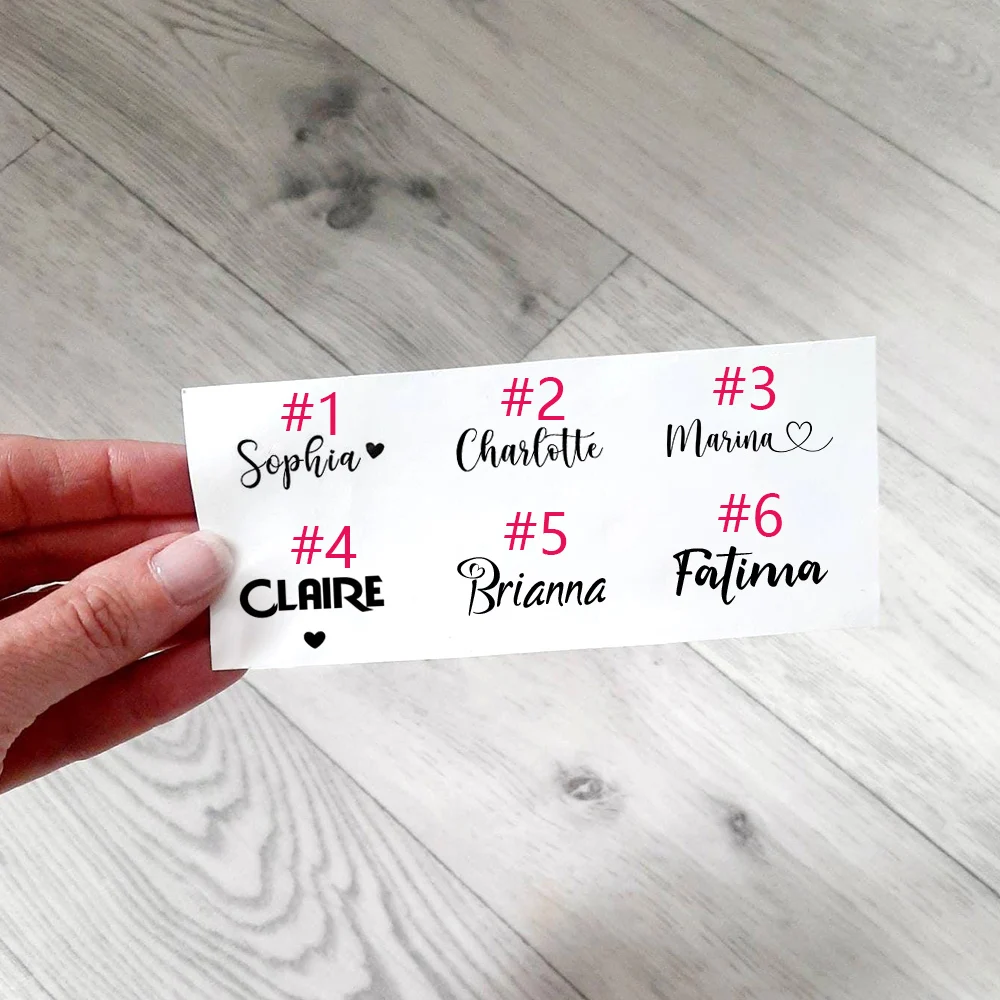 #1 #2 #3
Sophia Charlotte Marina
#4 #5 #6
CLAIRE Brianna Fatima